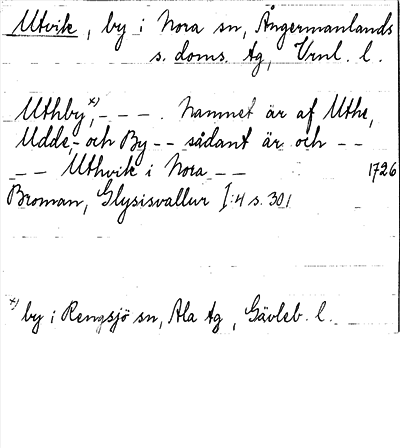 Utvik, by i Nora sn, Ångermanlands
s. doms. tg, Vrnl. l.
Uthby x), - - - . Namnet är af Uthe,
Udde,- och By - - sådant är och - -
- - Uthvik i Nora - - 1726
Broman, Glysisvallur I:4 s. 301
x) by i Rengsjö sn, Ala tg, Gävleb. l.